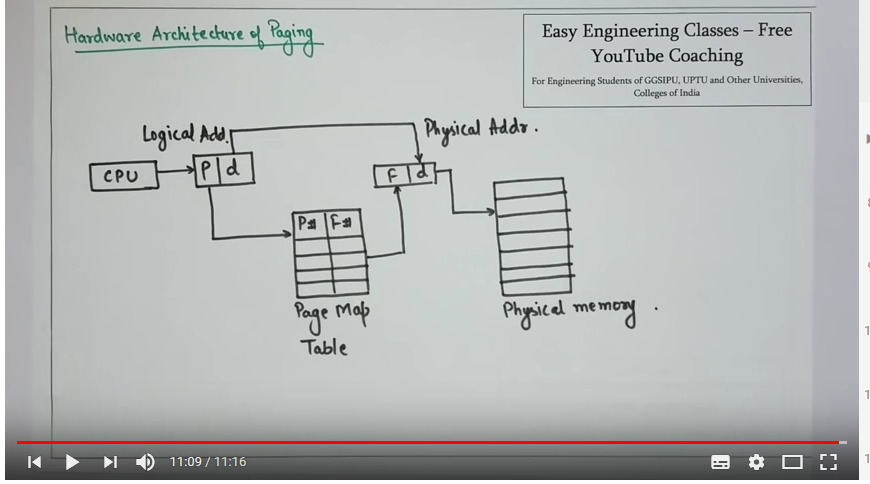 Hardware Architecture of Paging
Easy Engineering Classes – Free
YouTube Coaching
For Engineering Students of GGSIPU, UPTU and Other Universities,
Colleges of India
Logical Add.
Physical Addr.
CPU
P d
F d
P# F#
Page Map
Table
Physical memory.
11:09 / 11:16